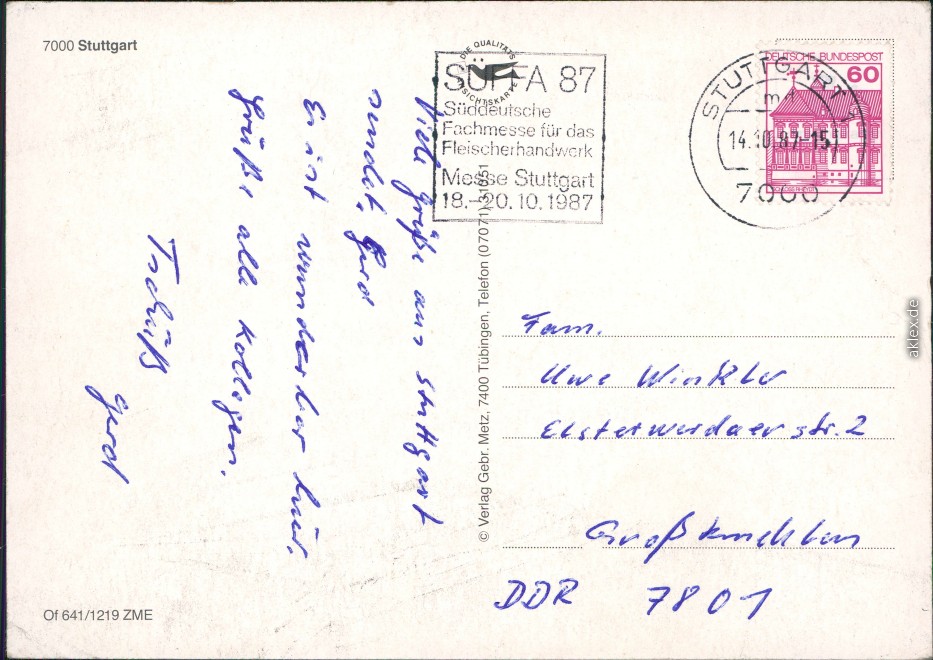 7000 Stuttgart
DIE QUALITÄTS
ANSICHTSKARTE
SÜFFA 87
Süddeutsche
Fachmesse für das
Fleischerhandwerk
Messe Stuttgart
18.-20.10.1987
STUTTGART
mA
14.10.87-15
7000
DEUTSCHE BUNDESPOST
60
SCHLOSS RHEYDT
Viele Grüße aus Stuttgart
sendet, Gerd
Es ist wunderbar hier.
Grüße alle Kollegen.
Tschüß
Gerd
© Verlag Gebr. Metz, 7400 Tübingen, Telefon (07071) 31051
Fam.
Uwe Winkler
Elsterwerdaer str. 2
Großkmehlen
DDR 7801
Of 641/1219 ZME
aklex.de